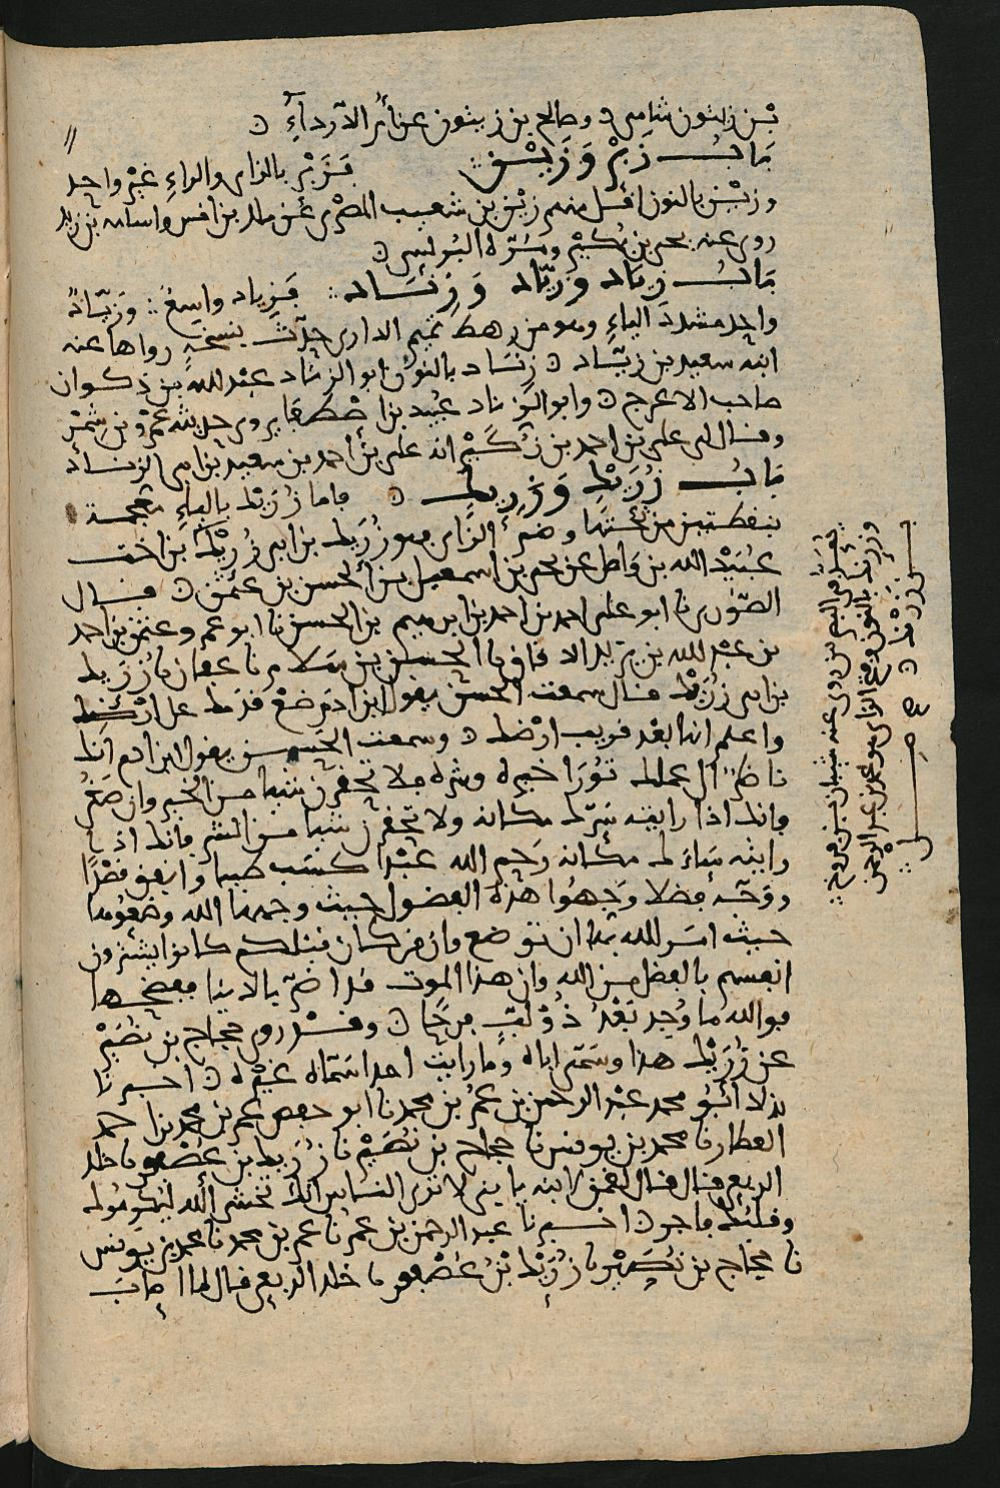 بن زيتون شامي وصالح بن زيتون عن أم الدرداء
باب زبر وزين فزبر بالزاي والراء غير واحد
وزين بالنون اقل منهم زين بن شعيب المصري عن ملك بن انس واسامه بن زيد
روى عنه يحيى بن بكير وميسره البرلسي
باب زياد وزياد وزناد فزياد واسع وزياد
واحد مشدد الياء وهو من رهط تميم الداري حدث بنسخة رواها عنه
ابنه سعيد بن زياد زناد بالنون ابو الزناد عبد الله بن ذكوان
صاحب الاعرج وابو الزناد عبيد بن يروي حديثه عمرو بن شمر
وقال لي علي بن احمد بن انه علي بن احمد بن سعيد بن ابي الزناد
باب زريك وزريك فاما زريك بالياء معجمة
بنقطتين من تحتها وضم الزاي فهو زريك بن ابي زريك بن اخت
عبيد الله بن عن بن اسمعيل بن الحسن بن قال
الصوري نا ابو علي احمد بن احمد بن ابرهيم بن الحسن نا ابو عمر بن احمد
بن عبد الله بن يزيد نا الحسين بن سلام نا عفان نا زريك
بن ابي زريك قال سمعت الحسن يقول ابن ادم ضع قدمك على ارضك
واعلم انها بعد قريب وسمعت الحسن يقول ابن ادم انك
ناظر الى عملك خيره وشره فلا تحقرن شيا من الخير وان صغر
فانك اذا رايته سرك مكانه ولا تحقرن شيا من الشر فانك اذا
رايته ساءك مكانه رحم الله عبدا كسب طيبا وانفق قصدا
ووجه فضلا وجهوا هذه الفضول حيث وجهها الله وضعوها
حيث امر الله بها ان توضع وان من كان قبلكم كانوا يشترون
انفسهم بالفضل من الله وان هذا الموت قد اضر بالدنيا ففضحها
فوالله ما وجد بعد ذو لب فرحا وقد روى حجاج بن نصير
عن زريك هذا وسمى اباه وما رايت احدا سماه غيره اخبرنا
بذلك ابو محمد عبد الرحمن بن عمر بن محمد نا ابو حفص عمر بن محمد بن احمد
العطار نا محمد بن يونس نا حجاج بن نصير نا زريك بن نا خلد
الربعي قال قال لقمن لابنه يا بني لا تري الناس انك تخشى الله ليكرموك
وقلبك فاجر اخبرنا عبد الرحمن بن عمر نا عمر بن محمد نا محمد بن يونس
نا حجاج بن نصير نا زريك بن نا خلد الربعي قال لما مات
روى عنه شيبان بن فروخ
وزرنك بالنون وفتح الزاي هو محمد بن عبد الرحمن
بن زرنك